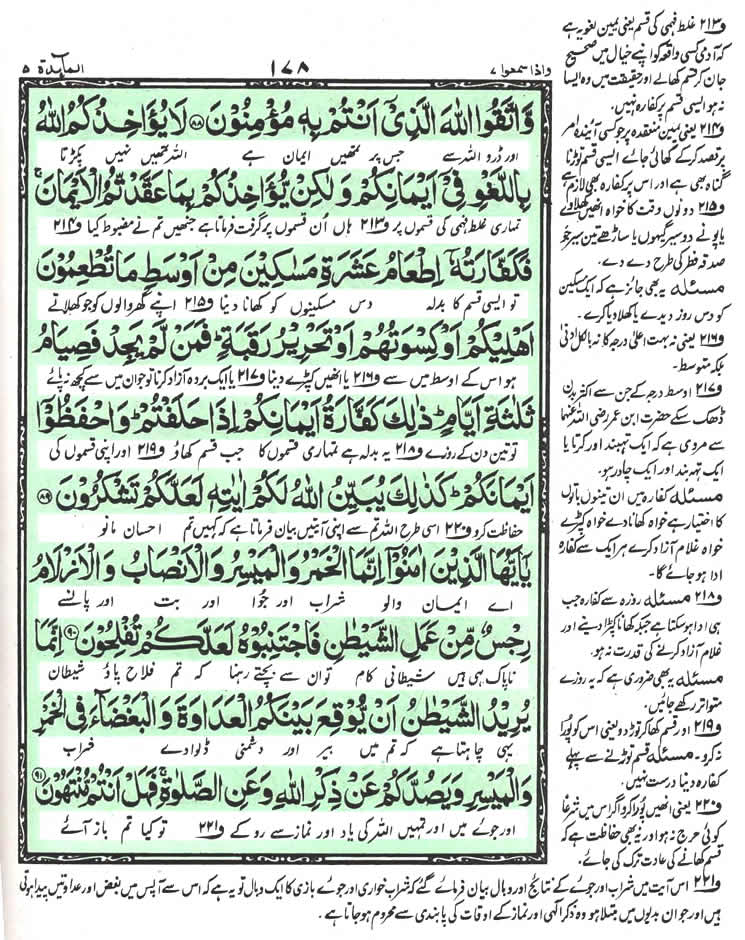 المآئدة ۵
۱۷۸
واذا سمعوا ۷
وَاتَّقُوا اللّٰهَ الَّذِیْۤ اَنْتُمْ بِهٖ مُؤْمِنُوْنَ ﴿۸۸﴾ لَا یُؤَاخِذُكُمُ اللّٰهُ
اور ڈرو اللہ سے جس پر تمھیں ایمان ہے اللہ تمھیں نہیں پکڑتا
بِاللَّغْوِ فِیْۤ اَیْمَانِكُمْ وَلٰكِنْ یُّؤَاخِذُكُمْ بِمَا عَقَّدْتُّمُ الْاَیْمَانَ ۚ
تمہاری غلط فہمی کی قسموں پر و۲۱۳ ہاں اُن قسموں پر گرفت فرماتا ہے جنھیں تم نے مضبوط کیا و۲۱۴
فَكَفَّارَتُهٗۤ اِطْعَامُ عَشَرَةِ مَسٰكِیْنَ مِنْ اَوْسَطِ مَا تُطْعِمُوْنَ
تو ایسی قسم کا بدلہ دس مسکینوں کو کھانا دینا و۲۱۵ اپنے گھر والوں کو جو کھلاتے
اَهْلِیْكُمْ اَوْ كِسْوَتُهُمْ اَوْ تَحْرِیْرُ رَقَبَةٍ ؕ فَمَنْ لَّمْ یَجِدْ فَصِیَامُ
ہو اس کے اوسط میں سے و۲۱۶ یا انھیں کپڑے دینا و۲۱۷ یا ایک بردہ آزاد کرنا تو جو ان میں سے کچھ نہ پائے
ثَلٰثَةِ اَیَّامٍ ؕ ذٰلِكَ كَفَّارَةُ اَیْمَانِكُمْ اِذَا حَلَفْتُمْ ؕ وَاحْفَظُوْۤا
تو تین دن کے روزے و۲۱۸ یہ بدلہ ہے تمہاری قسموں کا جب قسم کھاؤ و۲۱۹ اور اپنی قسموں کی
اَیْمَانَكُمْ ؕ كَذٰلِكَ یُبَیِّنُ اللّٰهُ لَكُمْ اٰیٰتِهٖ لَعَلَّكُمْ تَشْكُرُوْنَ ﴿۸۹﴾
حفاظت کرو و۲۲۰ اسی طرح اللہ تم سے اپنی آیتیں بیان فرماتا ہے کہ کہیں تم احسان مانو
یٰۤاَیُّهَا الَّذِیْنَ اٰمَنُوْۤا اِنَّمَا الْخَمْرُ وَالْمَیْسِرُ وَالْاَنْصَابُ وَالْاَزْلَامُ
اے ایمان والو شراب اور جُوا اور بت اور پانسے
رِجْسٌ مِّنْ عَمَلِ الشَّیْطٰنِ فَاجْتَنِبُوْهُ لَعَلَّكُمْ تُفْلِحُوْنَ ﴿۹۰﴾ اِنَّمَا
ناپاک ہی ہیں شیطانی کام تو ان سے بچتے رہنا کہ تم فلاح پاؤ شیطان
یُرِیْدُ الشَّیْطٰنُ اَنْ یُّوْقِعَ بَیْنَكُمُ الْعَدَاوَةَ وَالْبَغْضَآءَ فِی الْخَمْرِ
یہی چاہتا ہے کہ تم میں بیر اور دشمنی ڈلوا دے شراب
وَالْمَیْسِرِ وَیَصُدَّكُمْ عَنْ ذِكْرِ اللّٰهِ وَعَنِ الصَّلٰوةِ ۚ فَهَلْ اَنْتُمْ مُّنْتَهُوْنَ ﴿۹۱﴾
اور جوئے میں اور تمہیں اللہ کی یاد اور نماز سے روکے و۲۲۱ تو کیا تم باز آئے
و۲۱۳ غلط فہمی کی قسم یعنی یمین لغو یہ ہے
کہ آدمی کسی واقعہ کو اپنے خیال میں صحیح
جان کر قسم کھالے اور حقیقت میں وہ ایسا
نہ ہو ایسی قسم پر کفارہ نہیں۔
و۲۱۴ یعنی یمین منعقدہ پر جو کسی آئندہ امر
پر قصد کرکے کھائی جائے ایسی قسم توڑنا
گناہ بھی ہے اور اس پر کفارہ بھی لازم ہے
و۲۱۵ دونوں وقت کا خواہ انھیں کھلاوے
یا پونے دو سیر گیہوں یا ساڑھے تین سیر جَو
صدقۂ فطر کی طرح دے دے۔
مسئلہ یہ بھی جائز ہے کہ ایک مسکین
کو دس روز دیدے یا کھلا دیا کرے۔
و۲۱۶ یعنی نہ بہت اعلیٰ درجہ کا نہ بالکل ادنیٰ
بلکہ متوسط۔
و۲۱۷ اوسط درجہ کے جن سے اکثر بدن
ڈھک سکے حضرت ابن عمر رضی اللہ عنہما
سے مروی ہے کہ ایک تہبند اور کرتا یا
ایک تہبند اور ایک چادر ہو۔
مسئلہ کفارہ میں ان تینوں باتوں
کا اختیار ہے خواہ کھانا دے خواہ کپڑے
خواہ غلام آزاد کرے ہر ایک سے کفارہ
ادا ہو جائے گا۔
و۲۱۸ مسئلہ روزہ سے کفارہ جب
ہی ادا ہو سکتا ہے جبکہ کھانا کپڑا دینے اور
غلام آزاد کرنے کی قدرت نہ ہو۔
مسئلہ یہ بھی ضروری ہے کہ یہ روزے
متواتر رکھے جائیں۔
و۲۱۹ اور قسم کھا کر توڑ دو یعنی اس کو پورا
نہ کرو۔ مسئلہ قسم توڑنے سے پہلے
کفارہ دینا درست نہیں۔
و۲۲۰ یعنی انھیں پورا کرو اگر اس میں شرعاً
کوئی حرج نہ ہو اور یہ بھی حفاظت ہے کہ
قسم کھانے کی عادت ترک کی جائے۔
و۲۲۱ اس آیت میں شراب اور جوئے کے نتائج اور وبال بیان فرمائے گئے کہ شراب خواری اور جوئے بازی کا ایک وبال تو یہ ہے کہ اس سے آپس میں بغض اور عداوتیں پیدا ہوتی
ہیں اور جو ان بدیوں میں مبتلا ہو وہ ذکر الٰہی اور نماز کے اوقات کی پابندی سے محروم ہو جاتا ہے۔